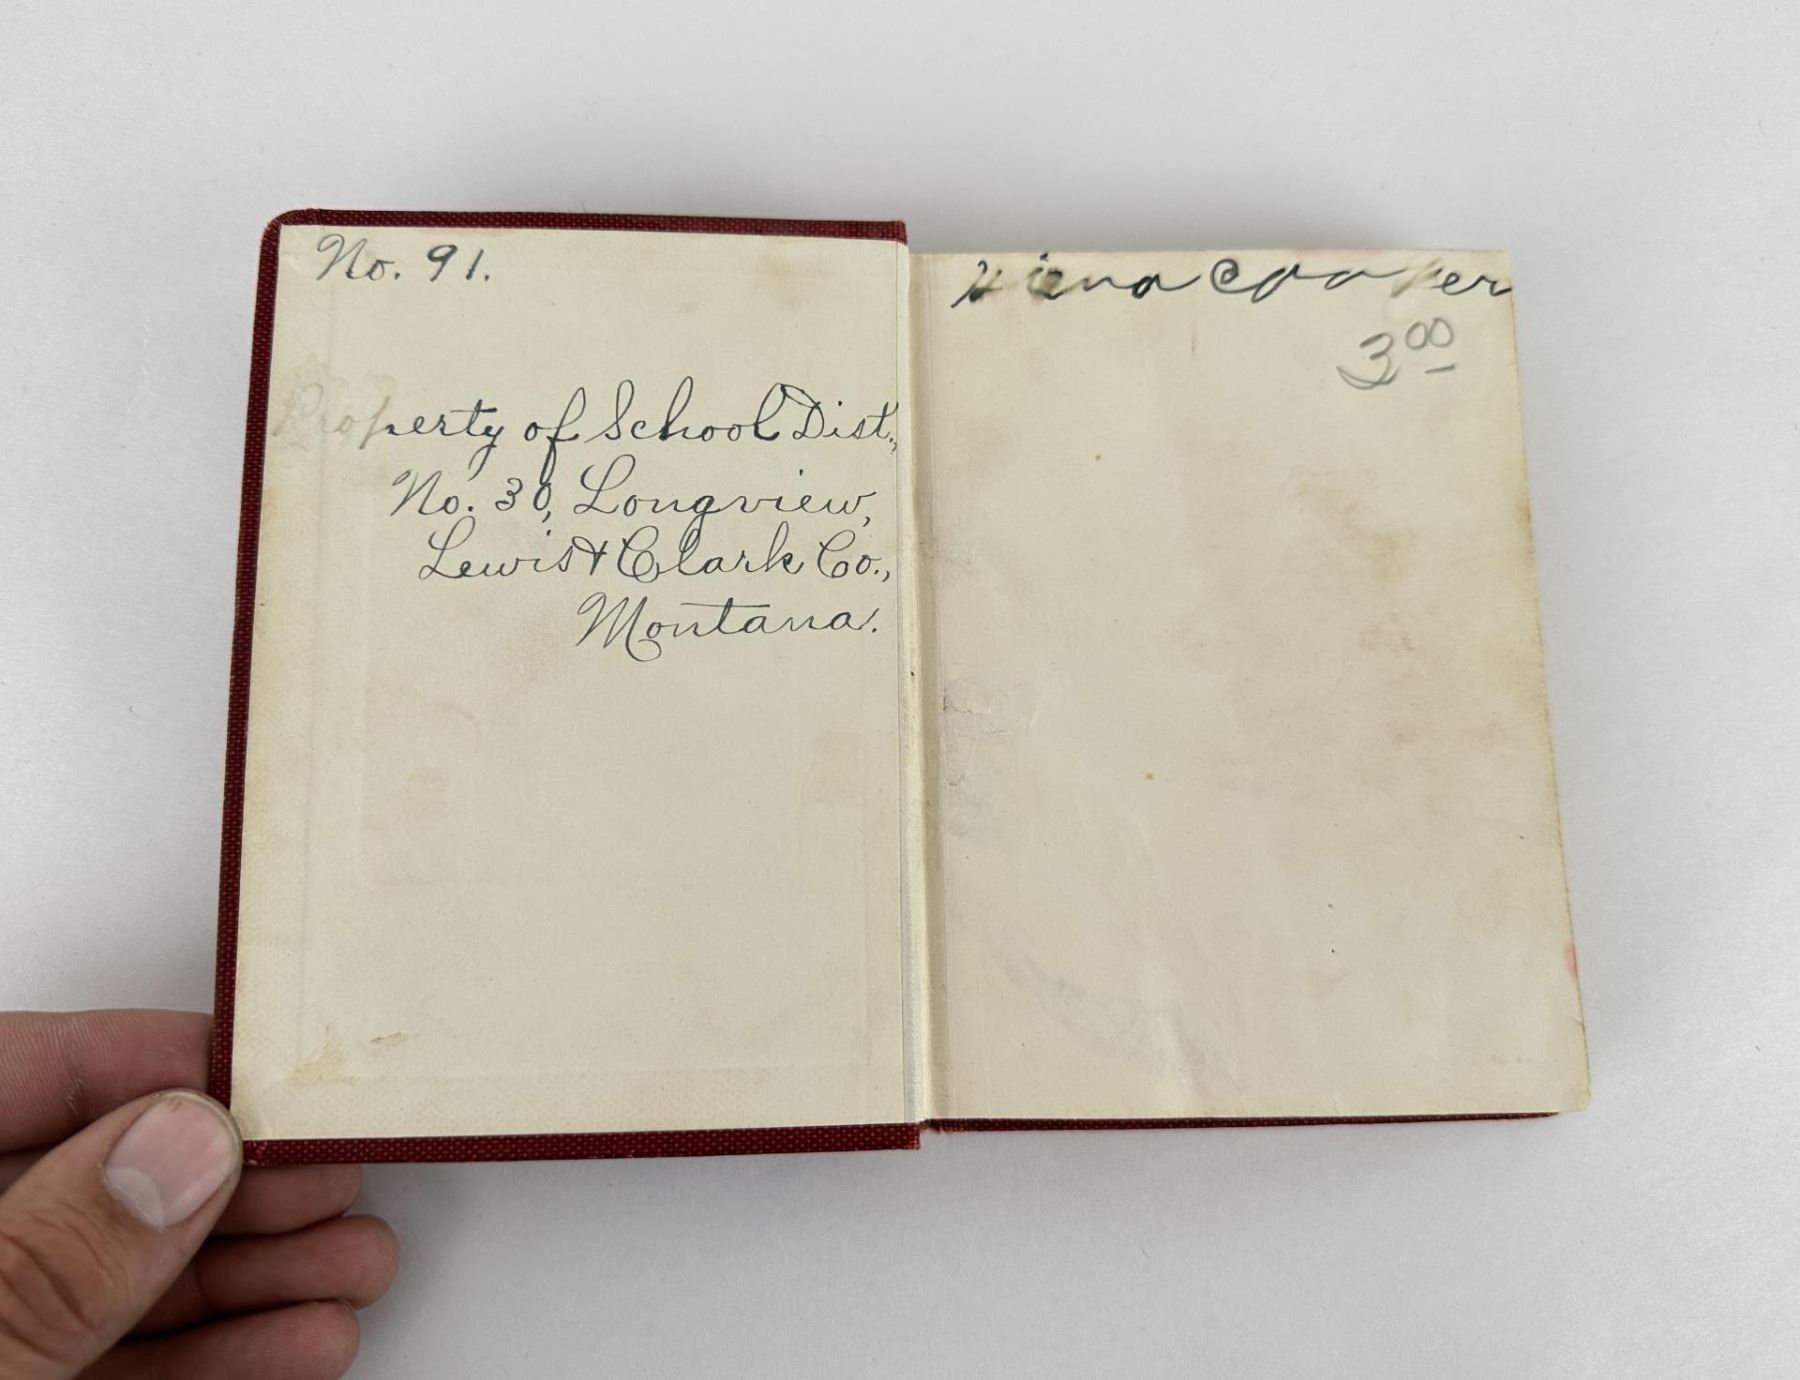 No. 91.
Property of School Dist.,
No. 30, Longview,
Lewis & Clark Co.,
Montana.
Cooper
3.00